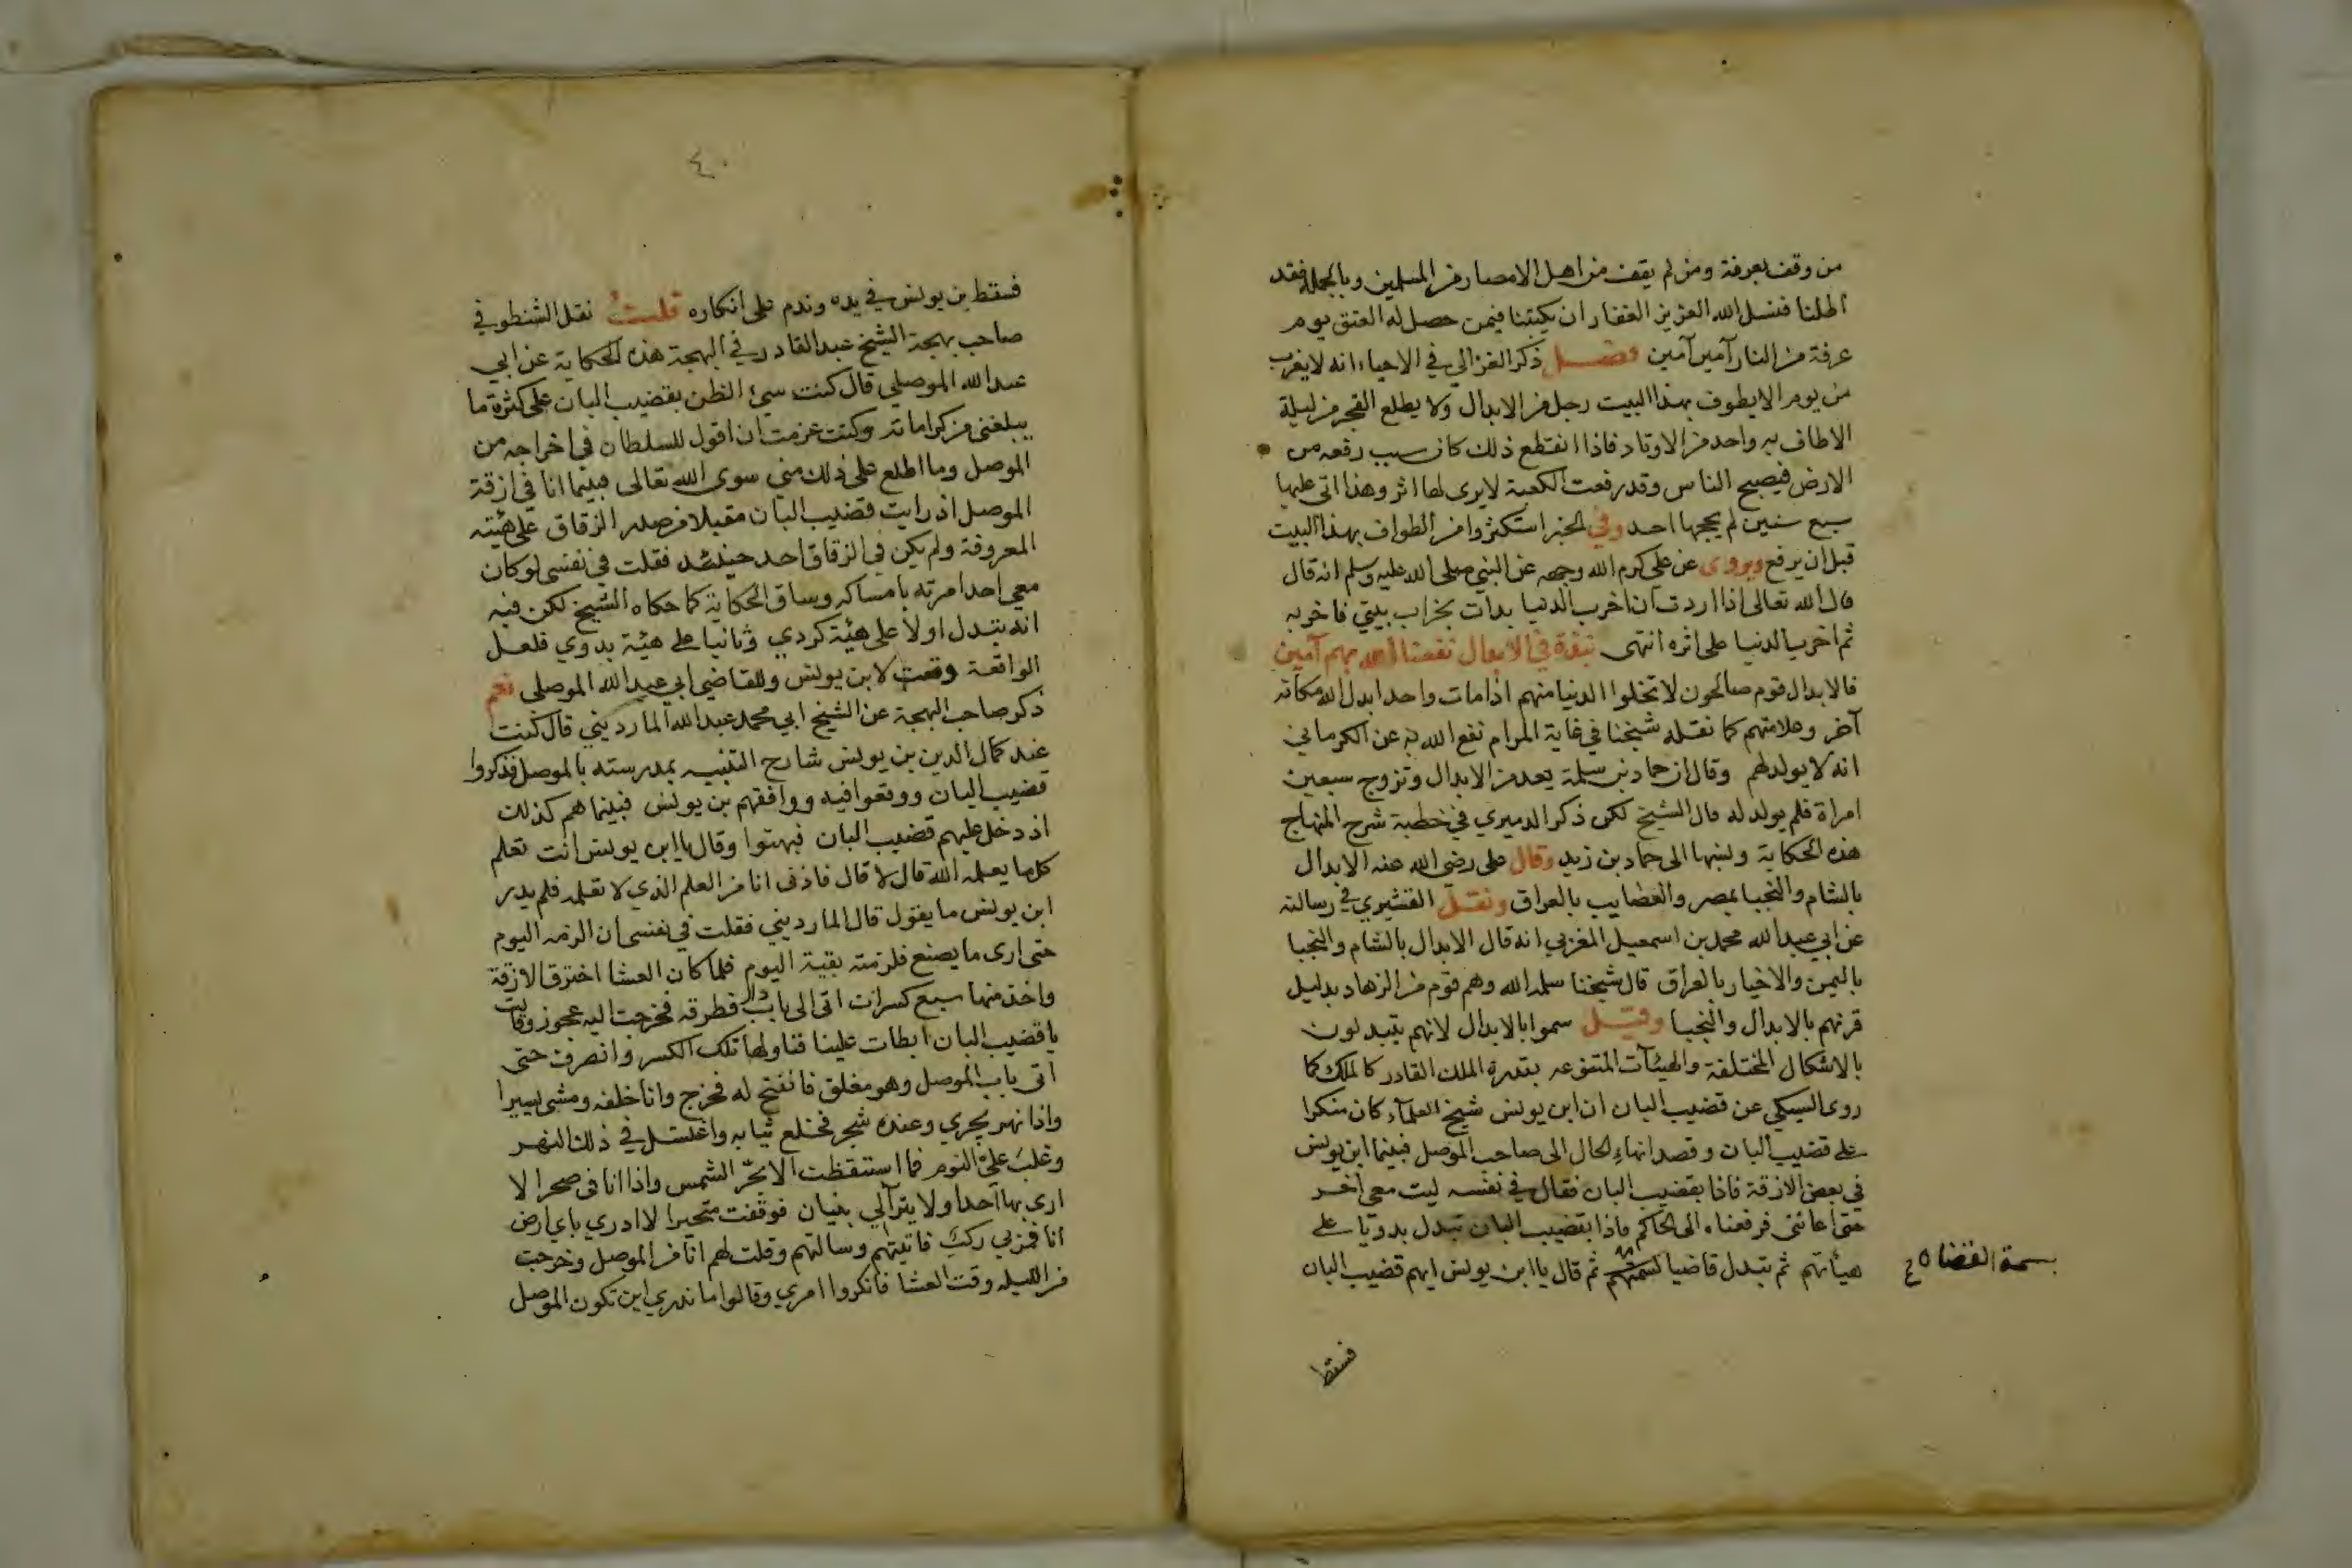 من وقف بعرفة ومن لم يقف من اهل الامصار من المسلمين وبالجملة فقد
اطلنا فنسل الله العزيز الغفار ان يكتبنا فيمن حصل له العتق يوم
عرفة من النار آمين آمين فصل ذكر الغزالي في الاحياء انه لا يغرب
من يوم الا يطوف بهذا البيت رجل من الابدال ولا يطلع الفجر من ليلة
الا طاف به واحد من الاوتاد فاذا انقطع ذلك كان سبب رفعه من
الارض فيصبح الناس وقد رفعت الكعبة لا يرى لها اثر وهذا اتى عليها
سبع سنين لم يحجها احد وفي الخبر استكثروا من الطواف بهذا البيت
قبل ان يرفع ويروى عن علي كرم الله وجهه عن النبي صلى الله عليه وسلم انه قال
قال الله تعالى اذا اردت ان اخرب الدنيا بدات بخراب بيتي فاخربه
ثم اخرب الدنيا على اثره انتهى نبذة في الابدال نفعنا الله بهم آمين
فالابدال قوم صالحون لا تخلوا الدنيا منهم اذا مات واحد ابدل الله مكانه
آخر وعلامتهم كما نقله شيخنا في غاية المرام نفع الله به عن الكرماني
انه لا يولد لهم وقال ان حماد بن سلمة يعد من الابدال وتزوج سبعين
امراة فلم يولد له قال الشيخ لكن ذكر الدميري في خطبة شرح المنهاج
هذه الحكاية ونسبها الى حماد بن زيد وقال علي رضي الله عنه الابدال
بالشام والنجبا بمصر والعصايب بالعراق ونقل القشيري في رسالته
عن ابي عبد الله محمد بن اسمعيل المغربي انه قال الابدال بالشام والنجبا
باليمن والاخيار بالعراق قال شيخنا سلمه الله وهم قوم من الزهاد بدليل
قرنهم بالابدال والنجبا وقيل سموا بالابدال لانهم يتبدلون
بالاشكال المختلفة والهيئآت المتنوعه بقدرة الملك القادر كالملك كما
روى السبكي عن قضيب البان ان ابن يونس شيخ العلماء كان منكرا
على قضيب البان وقصد انهاء الحال الى صاحب الموصل فبينما ابن يونس
في بعض الازقة فاذا بقضيب البان فقال في نفسه ليت معي آخر
حتى اعانني فرفعناه الى الحاكم فاذا بقضيب البان تبدل بدويا على
هيأتهم ثم تبدل قاضيا ثم قال يا ابن يونس ايهم قضيب البان
بسمة القضاه
فسقط
٤٠
فسقط بن يونس في يده وندم على انكاره قلت نقل الشنطوفي
صاحب بهجة الشيخ عبد القادر في البهجة هذه الحكاية عن ابي
عبد الله الموصلي قال كنت سيئ الظن بقضيب البان على كثرة ما
يبلغني من كراماته وكنت عزمت ان اقول للسلطان في اخراجه من
الموصل وما اطلع على ذلك مني سوى الله تعالى فبينما انا في ازقة
الموصل اذ رايت قضيب البان مقبلا من صدر الزقاق على هيئته
المعروفة ولم يكن في الزقاق احد حينئذ فقلت في نفسي لو كان
معي احد امرته بامساكه وساق الحكاية كما حكاه الشيخ لكن فيه
انه تبدل اولا على هيئة كردي وثانيا على هيئة بدوي فلعل
الواقعة وقعت لابن يونس وللقاضي ابي عبد الله الموصلي نعم
ذكر صاحب البهجة عن الشيخ ابي محمد عبد الله المارديني قال كنت
عند كمال الدين بن يونس شارح التنبيه بمدرسته بالموصل فذكروا
قضيب البان ووقعوا فيه ووافقهم بن يونس فبينما هم كذلك
اذ دخل عليهم قضيب البان فبهتوا وقال يا ابن يونس انت تعلم
كل ما يعلمه الله قال لا قال فاذن انا من العلم الذي لا تعلمه فلم يدر
ابن يونس ما يقول قال المارديني فقلت في نفسي ان الزمه اليوم
حتى ارى ما يصنع فلزمته بقية اليوم فلما كان العشا اخترق الازقة
واخذ منها سبع كسرات اتى الى باب دار فطرقه فخرجت اليه عجوز وقالت
يا قضيب البان ابطات علينا فناولها تلك الكسر وانصرف حتى
اتى باب الموصل وهو مغلق فانفتح له فخرج وانا خلفه ومشى يسيرا
واذا نهر يجري وعنده شجر فخلع ثيابه واغتسل في ذلك النهر
وغلب عليّ النوم فما استيقظت الا بحرّ الشمس واذا انا في صحرا لا
ارى بها احدا ولا يترآلي بنيان فوقفت متحيرا لا ادري باي ارض
انا فمر بي ركب فاتيتهم وسالتهم وقلت لهم انا من الموصل وخرجت
من الليله وقت العشا فانكروا امري وقالوا ما ندري اين تكون الموصل